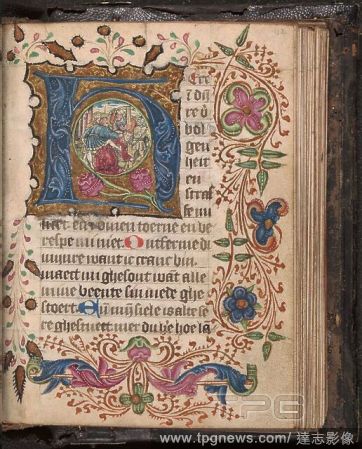 H Ere
ī dij
re v̄
bol
gen
heit
en
straf
fe mi
niet en
toerne en be
respe mi niet Ontferme di
mijnre want ic cranc bin
maect mi ghesont want alle
mine beente sin mede ghe
stoert En mijn siele is alte se
re ghestuert mer du hoe la
TPG
www.tpgnews.com/ 達志影像